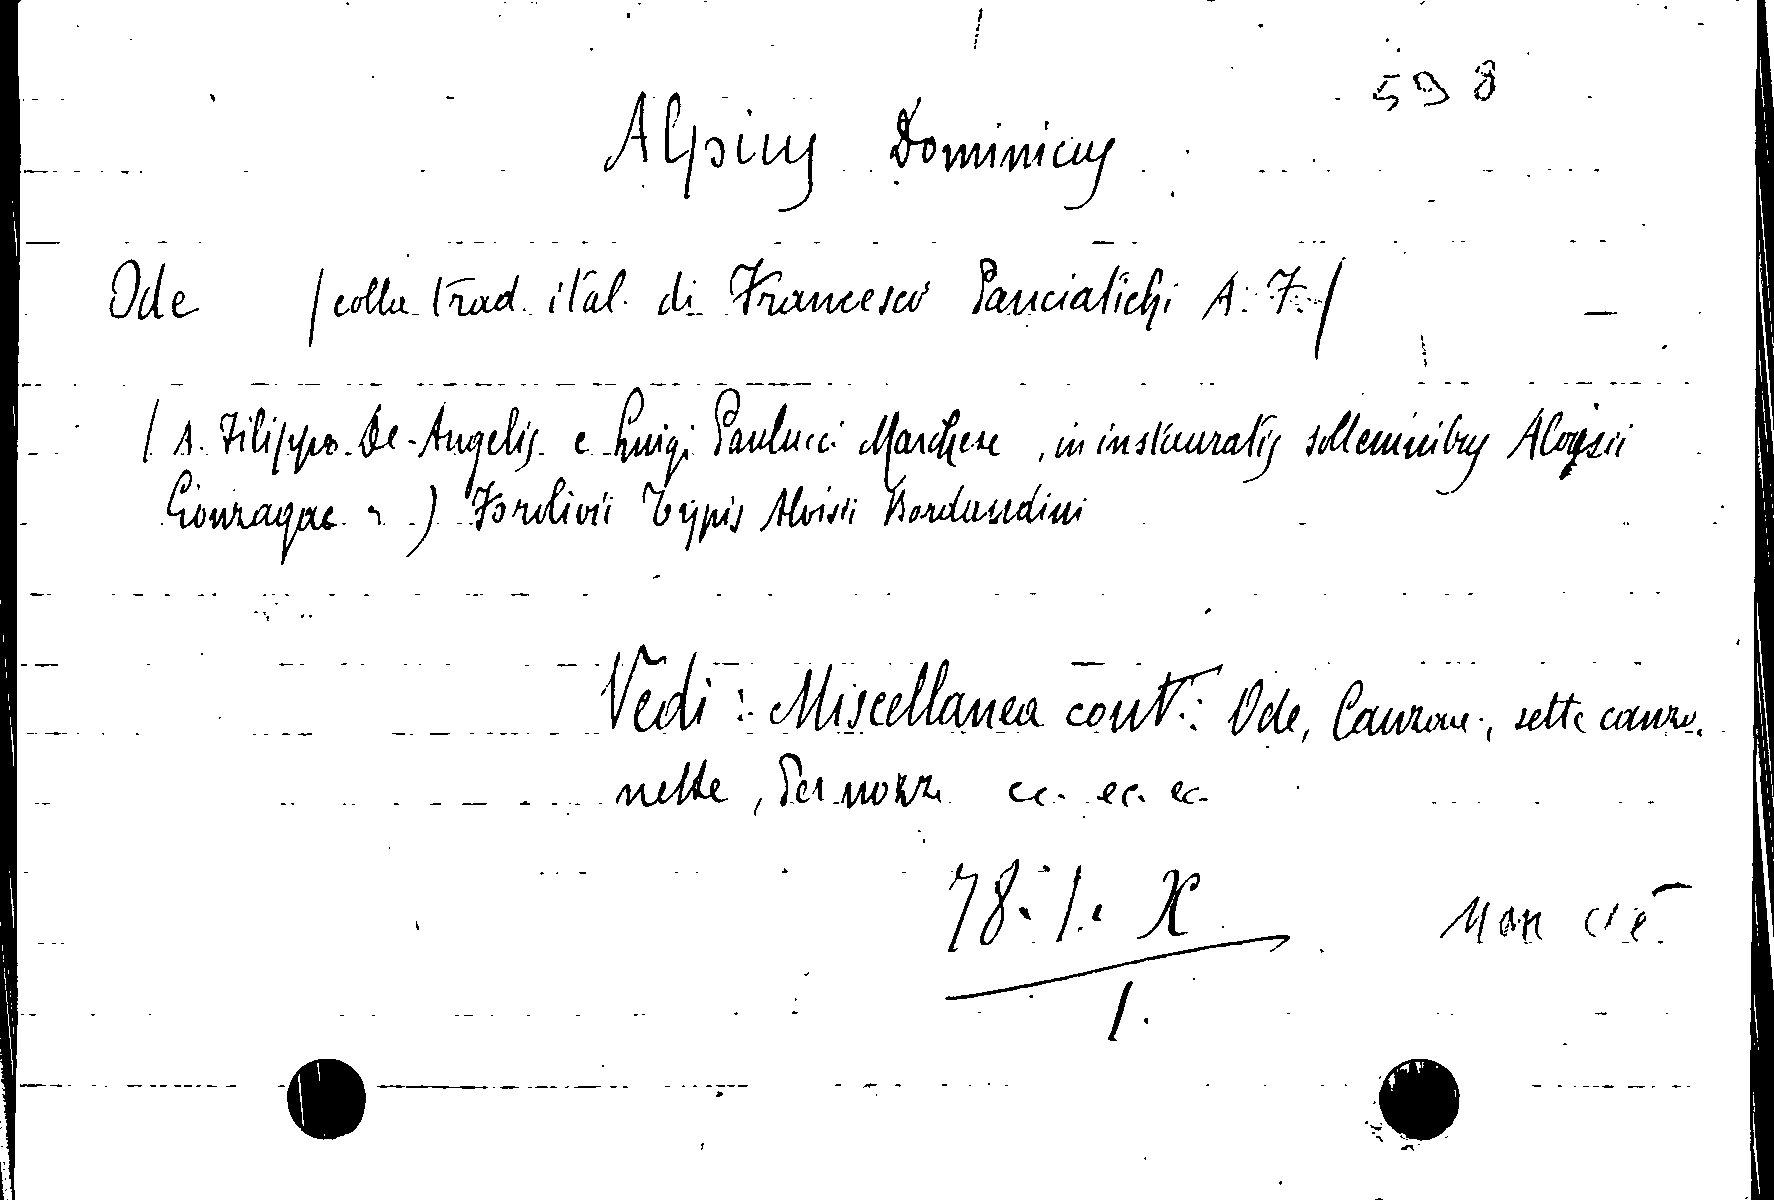 598
Alpius Dominicus
Ode (colla trad. ital. di Francesco Panciatichi A. F.)
( A. Filippo De-Angelis e Luigi Paulucci Marchese, in instauratis sollemnibus Aloysii
Gonzagae ) Forolivii Typis Aloisii Bordandini
Vedi: Miscellanea cont.: Ode, Canzone, sette canzo-
nette, Per nozze ec. ec. ec.
78. 1. X
1.
non c'è